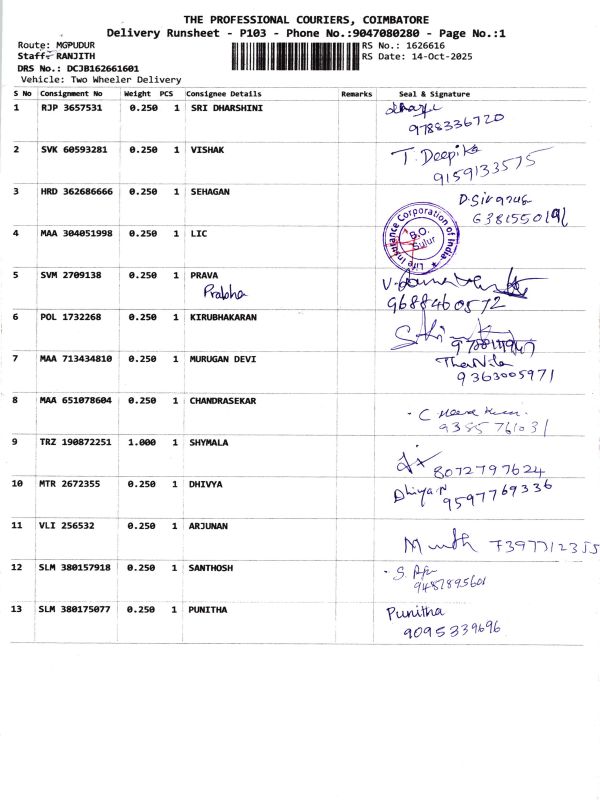 THE PROFESSIONAL COURIERS, COIMBATORE
Delivery Runsheet - P103 - Phone No.:9047080280 - Page No.:1
Route: MGPUDUR RS No.: 1626616
Staff: RANJITH RS Date: 14-Oct-2025
DRS No.: DCJB162661601
Vehicle: Two Wheeler Delivery
S No Consignment No Weight PCS Consignee Details Remarks Seal & Signature
1 RJP 3657531 0.250 1 SRI DHARSHINI
9788336720
2 SVK 60593281 0.250 1 VISHAK T. Deepika
9159133575
3 HRD 362686666 0.250 1 SEHAGAN
6381550191
4 MAA 304051998 0.250 1 LIC Life Insurance Corporation of India B.O. Sulur
5 SVM 2709138 0.250 1 PRAVA
Prabha 9688460572
6 POL 1732268 0.250 1 KIRUBHAKARAN
7 MAA 713434810 0.250 1 MURUGAN DEVI
9363005971
8 MAA 651078604 0.250 1 CHANDRASEKAR
9385761031
9 TRZ 190872251 1.000 1 SHYMALA
8072797624
10 MTR 2672355 0.250 1 DHIVYA
9597769336
11 VLI 256532 0.250 1 ARJUNAN
7397712355
12 SLM 380157918 0.250 1 SANTHOSH
13 SLM 380175077 0.250 1 PUNITHA Punitha
9095339696